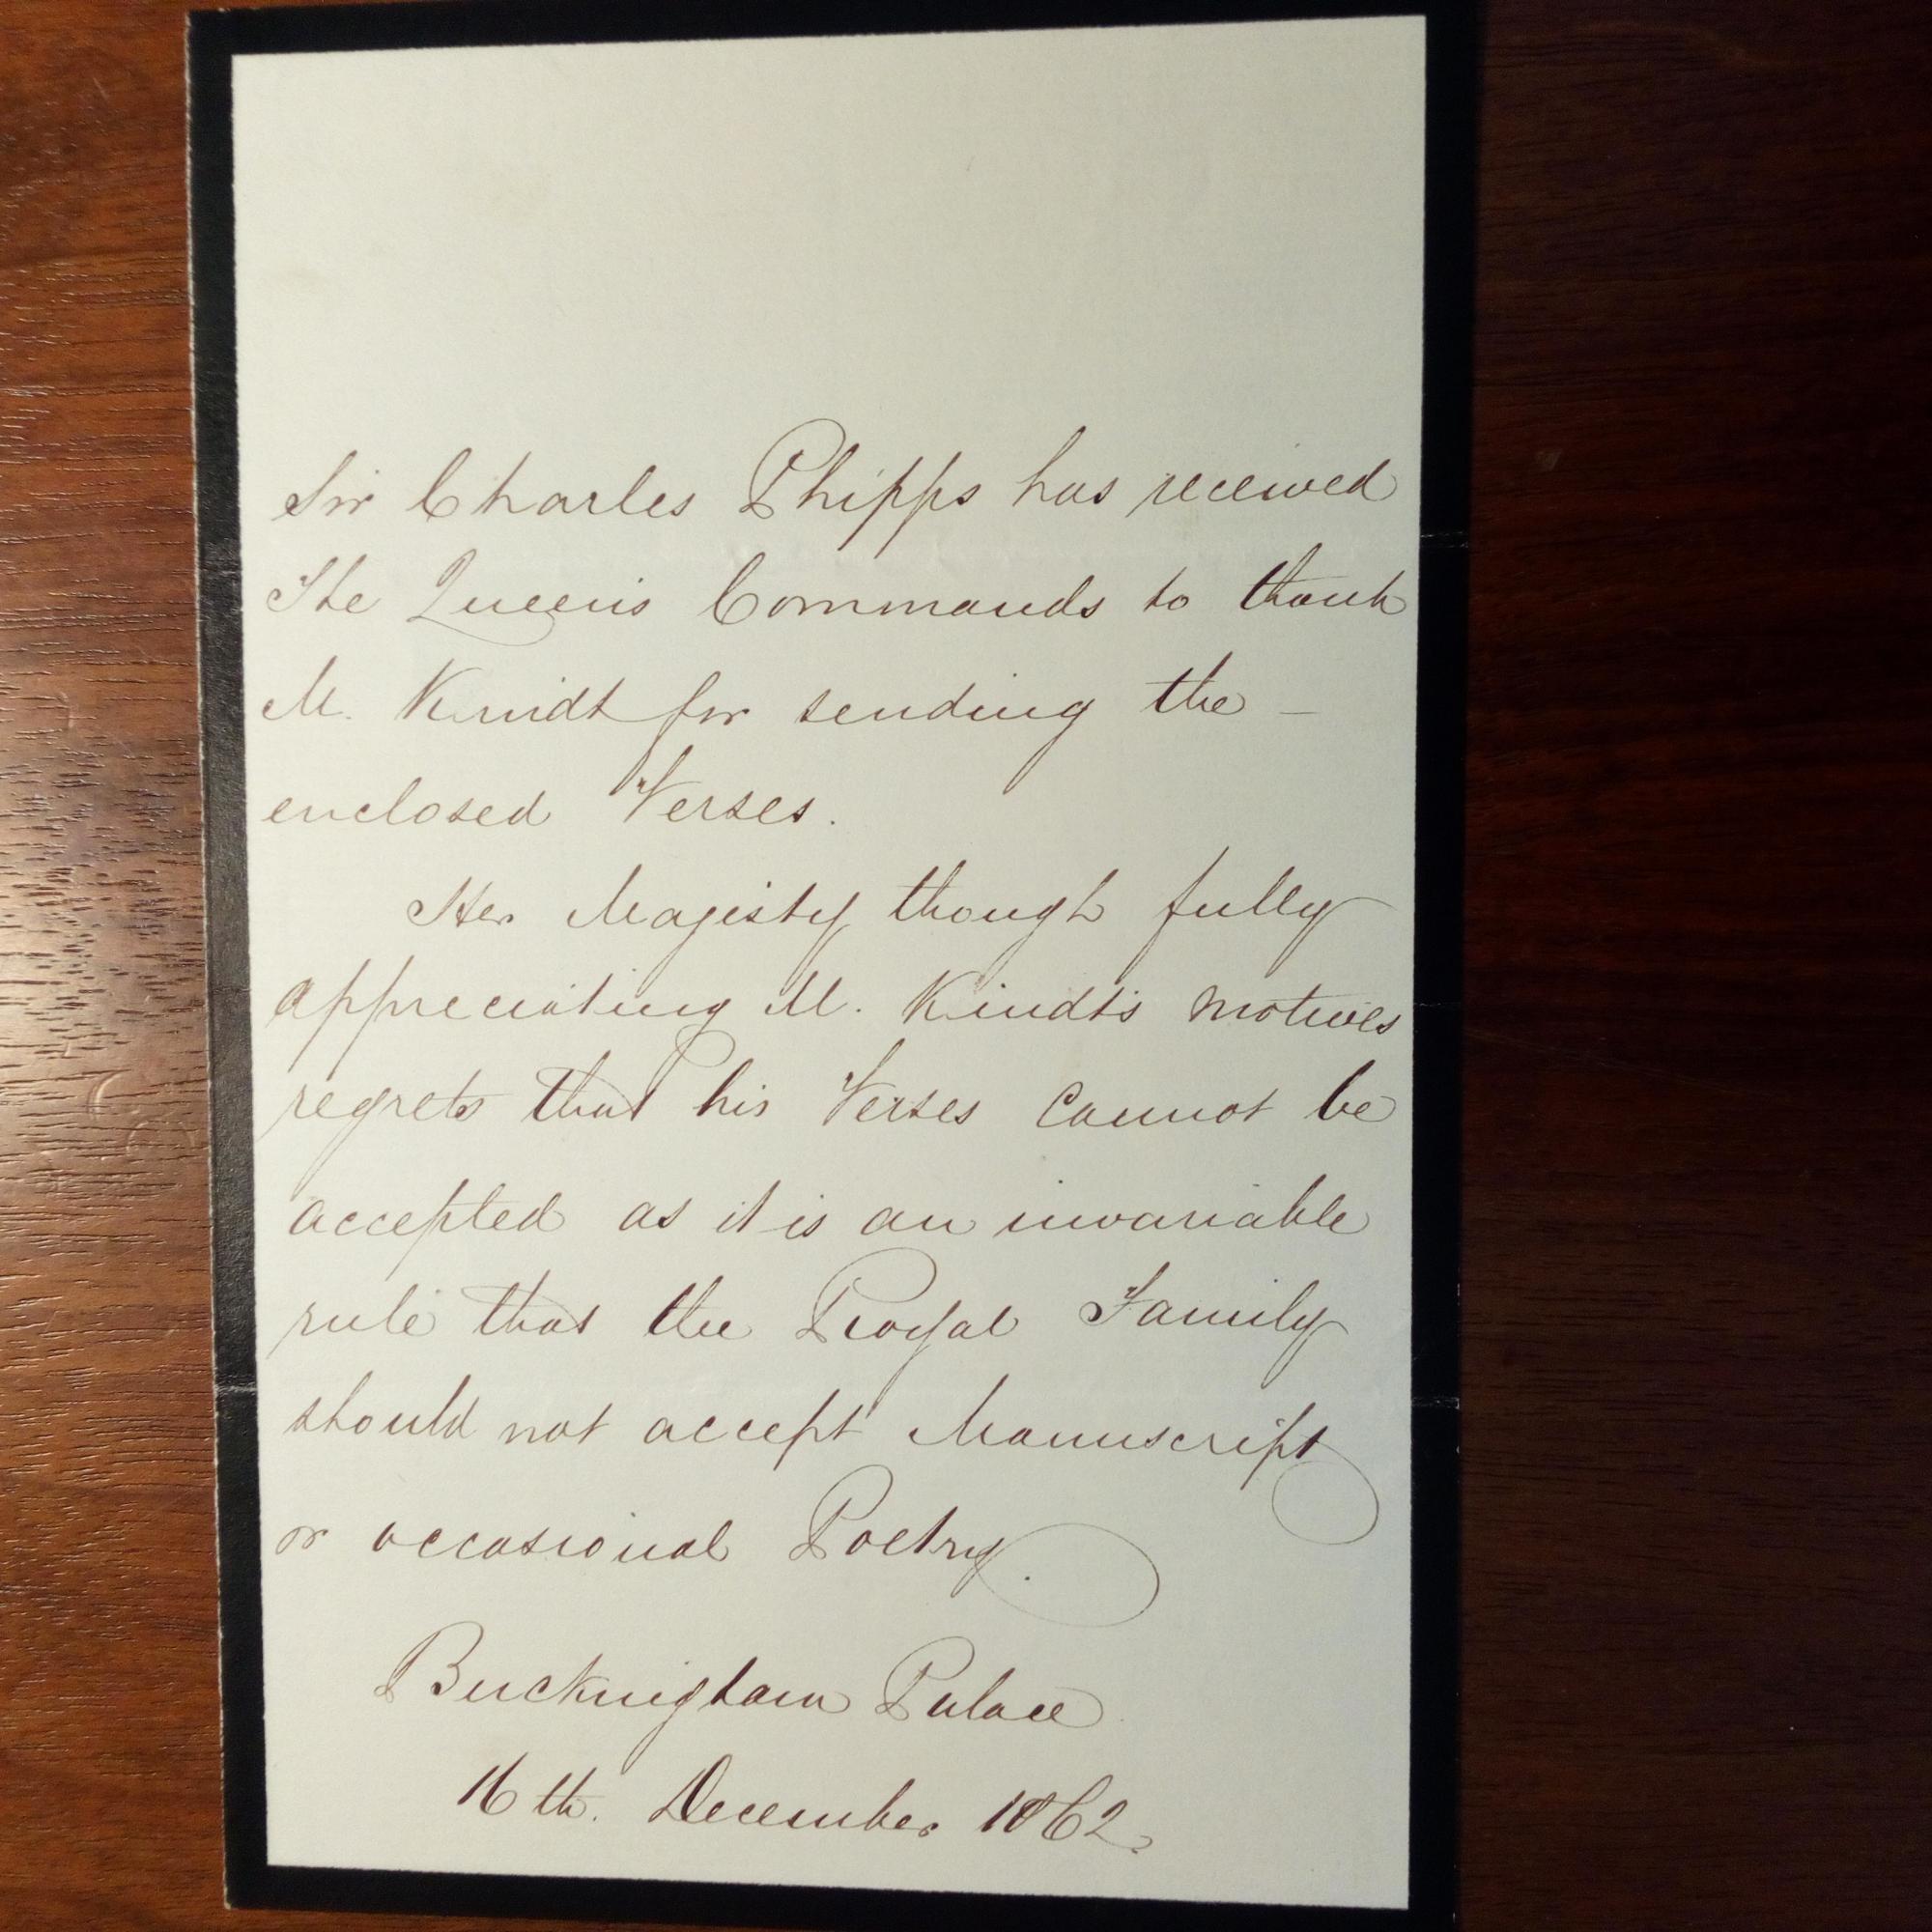 Sir Charles Phipps has received
The Queen's Commands to thank
M. Kindt for sending the –
enclosed Verses.
Her Majesty though fully
appreciating M. Kindt's motives
regrets that his Verses cannot be
accepted as it is an invariable
rule that the Royal Family
should not accept Manuscript
or occasional Poetry.
Buckingham Palace
16th. December 1862.